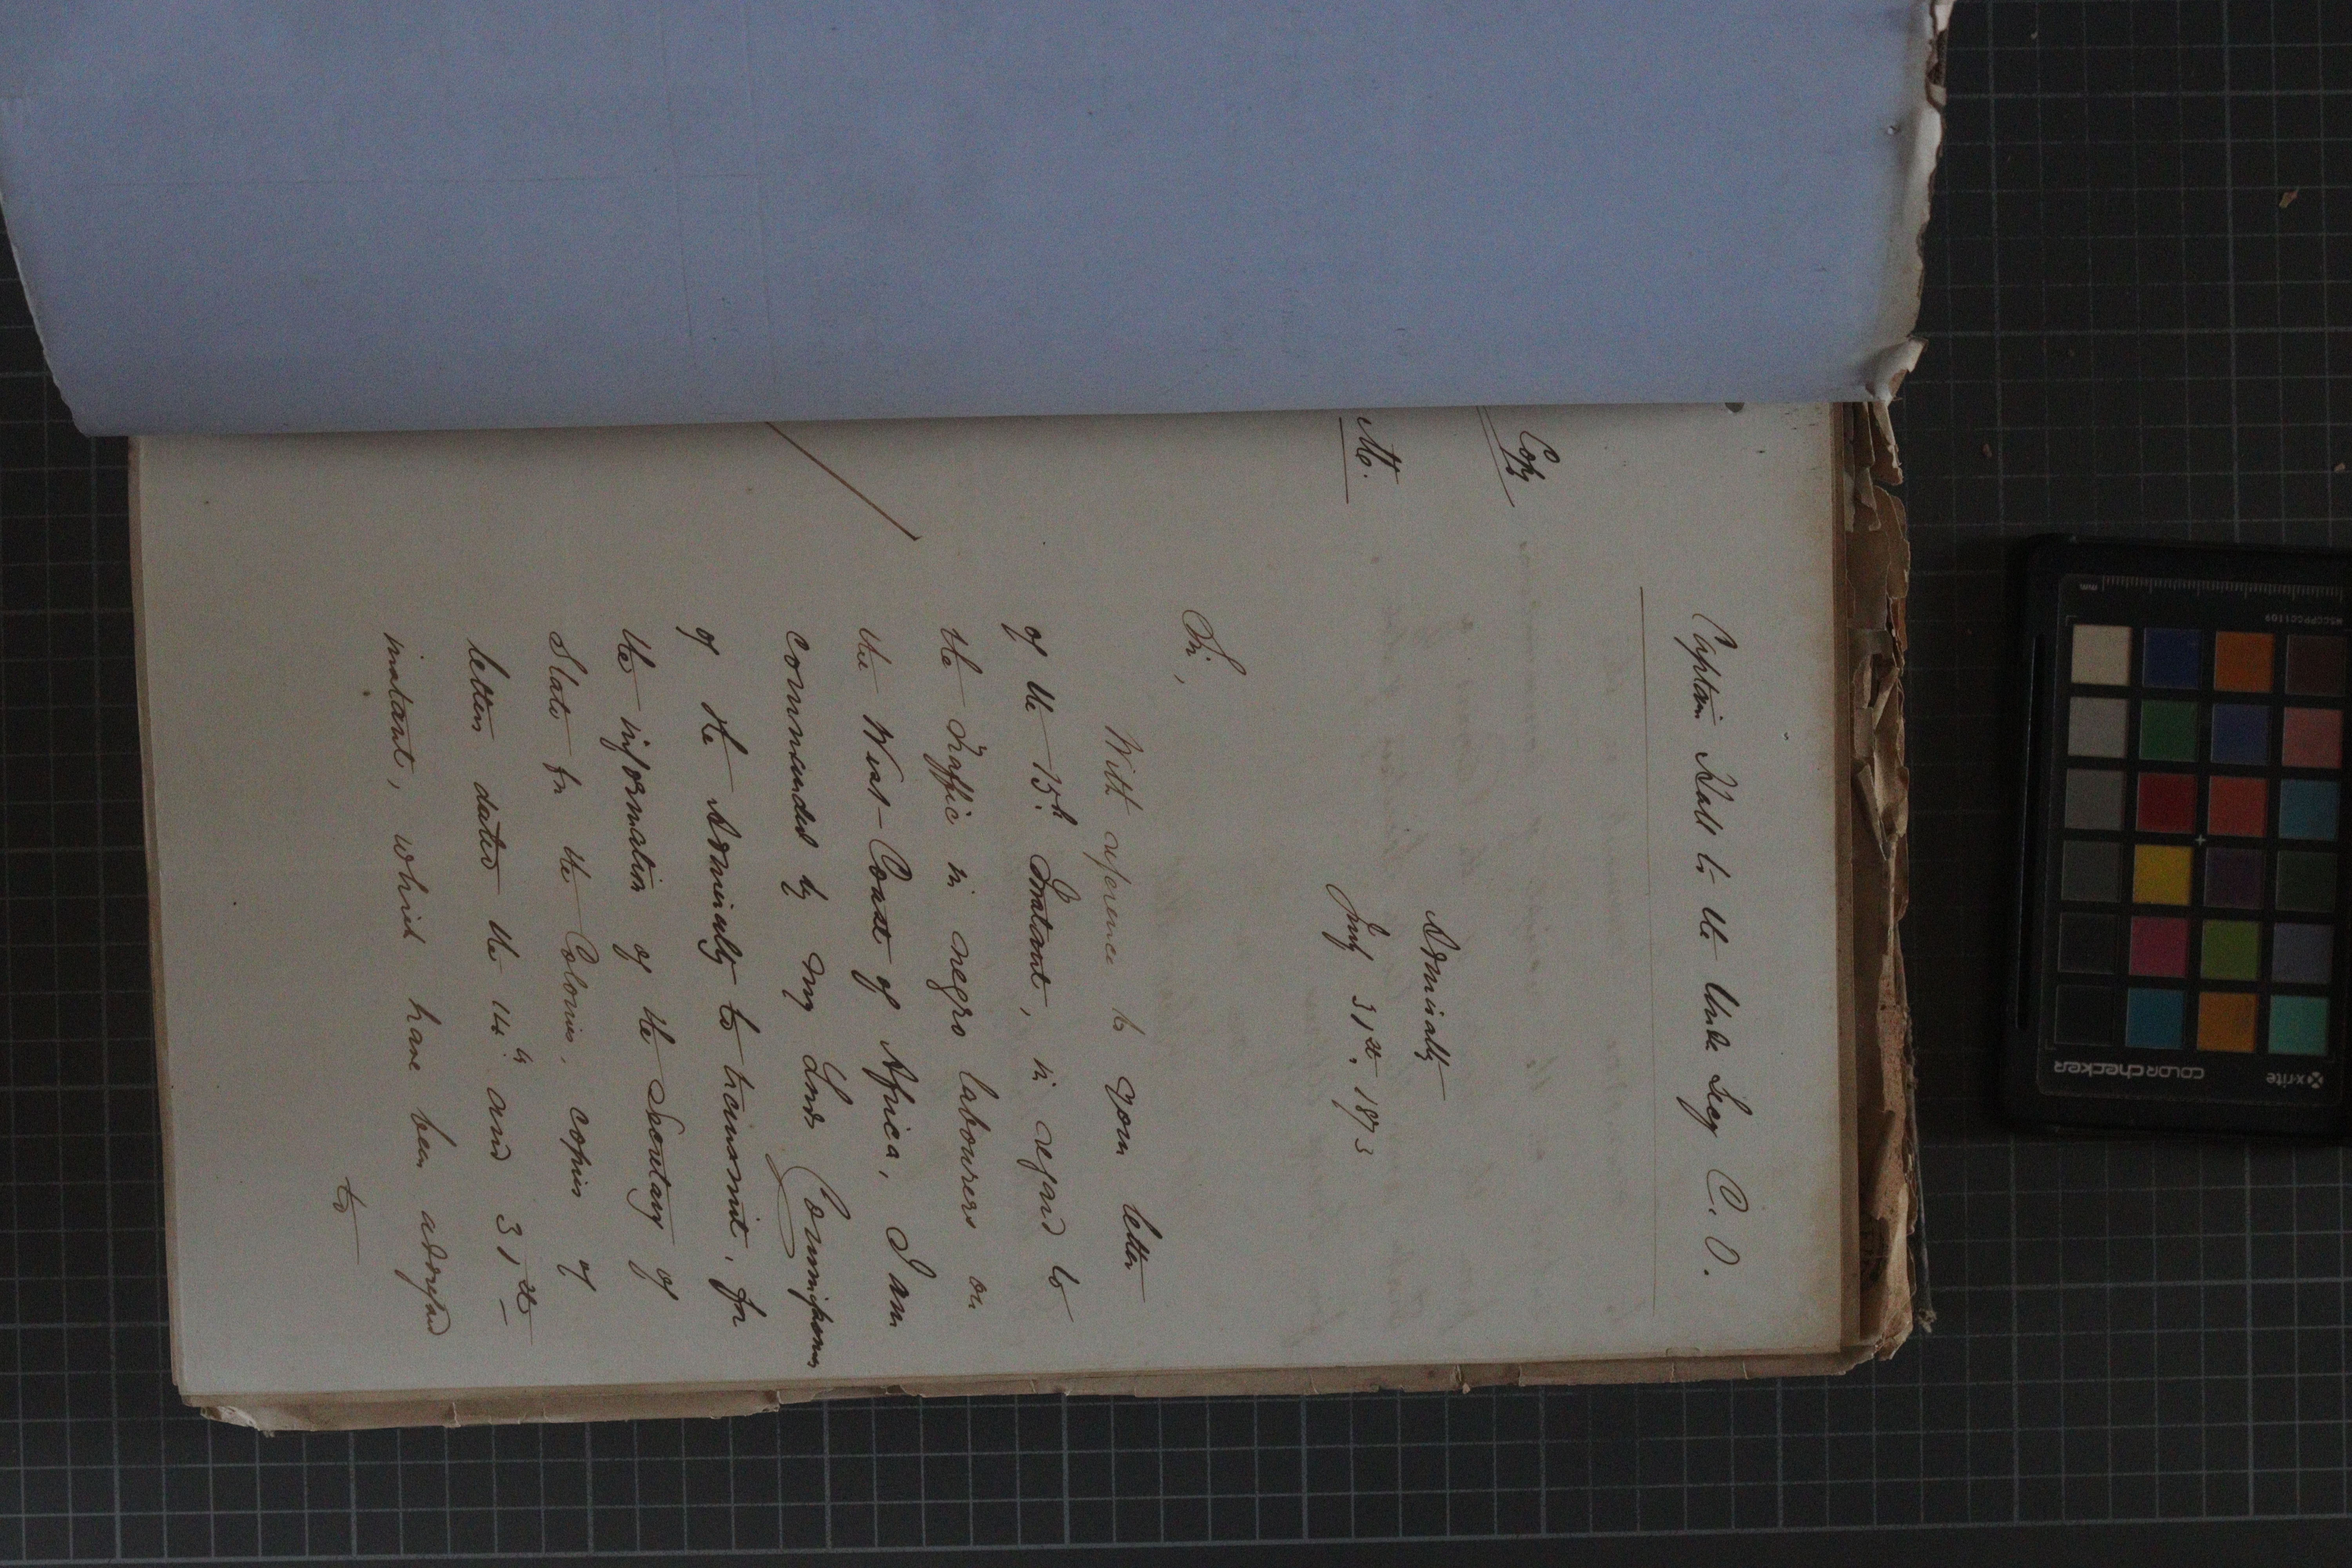 Captain Hall to the Under Secy C. O.
Copy
M.
Admiralty
July 31st. 1873
Sir,
With reference to your letter
of the 15th. Instant, in regard to
the Traffic in negro labourers on
the West-Coast of Africa, I am
commanded by my Lords Commissioners
of the Admiralty to transmit, for
the information of the Secretary of
State for the Colonies, copies of
letters dated the and 31st
instant, which have been addressed
to